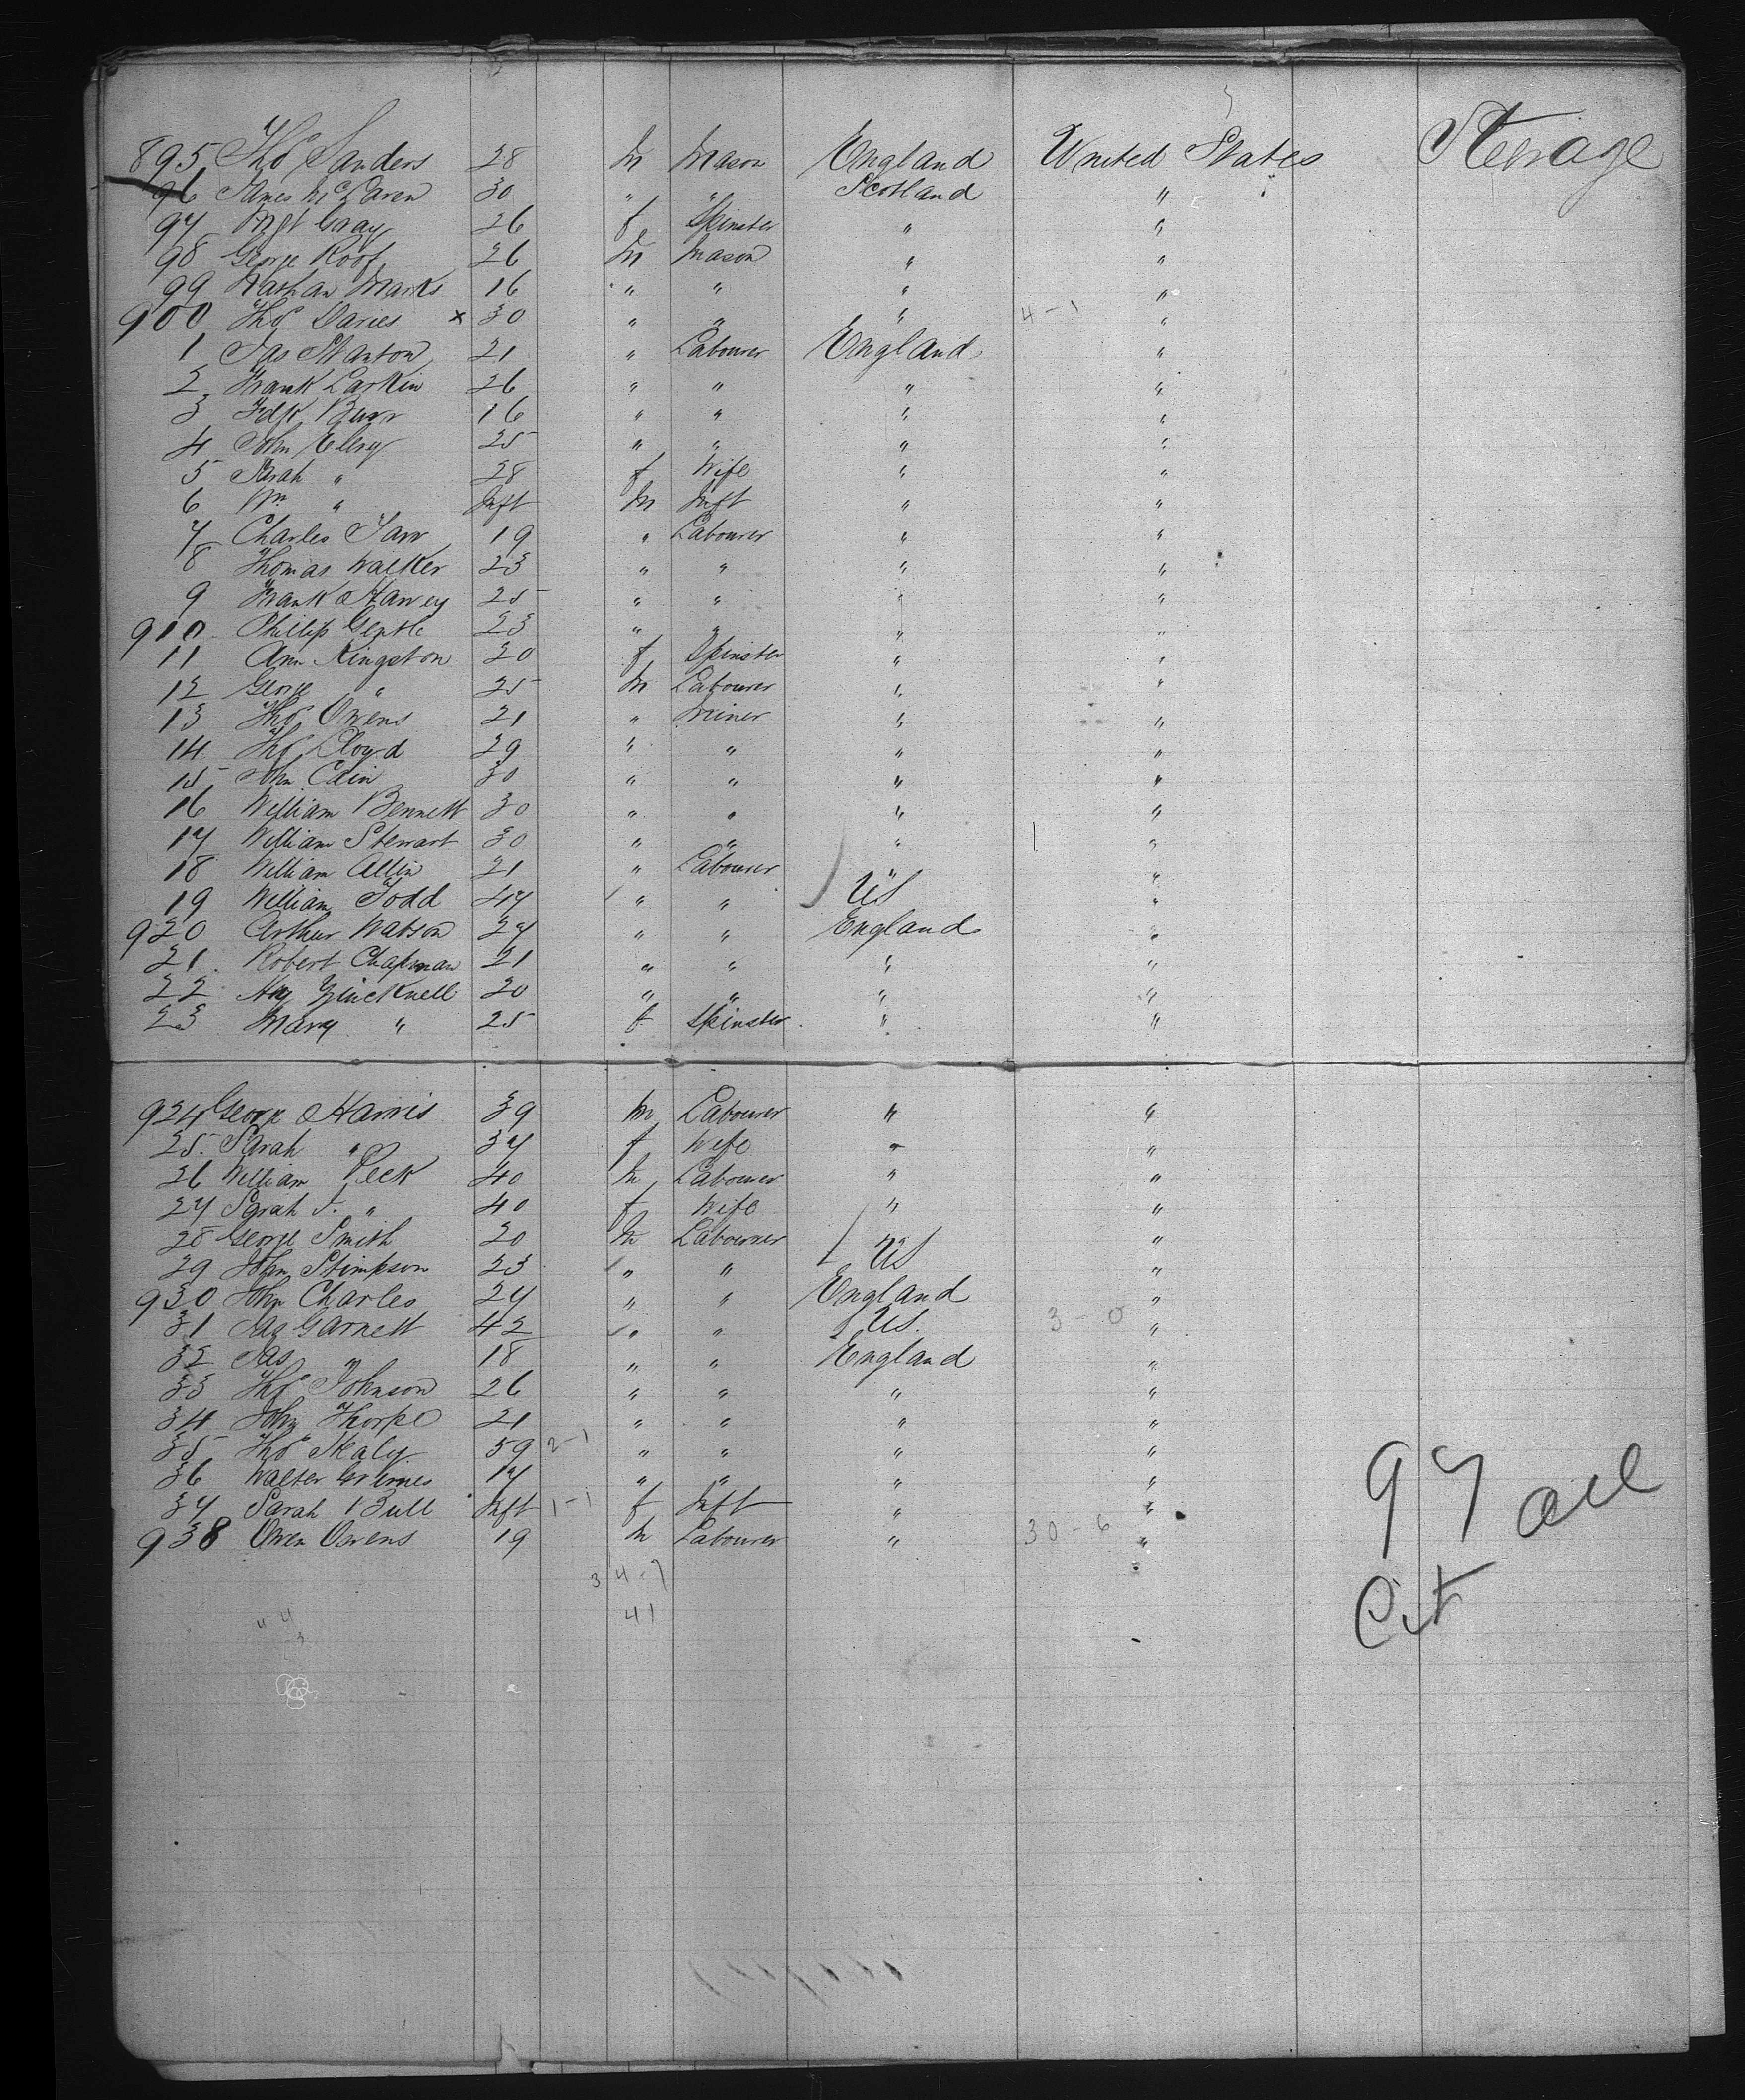 895 Thos Sanders 28 M Mason England United States Steerage
96 James McLaren 30 " " Scotland "
97 Mgt Gray 26 f Spinster " "
98 George Roof 26 M Mason " "
99 Nathan Marks 16 " " " "
900 Thos Davies x 30 " " " 4-1 "
1 Jas Stanton 21 " Labourer England "
2 Frank Larkin 26 " " " "
3 Fdk Burr 16 " " " "
4 John Elery 25 " " " "
5 Sarah " 28 f Wife " "
6 Wm " Inft M Inft " "
7 Charles Tarr 19 " Labourer " "
8 Thomas Walker 23 " " " "
9 Frank Harvey 25 " " " "
910 Phillip Gentle 23 " " " "
11 Ann Kingston 20 f Spinster " "
12 George " 25 M Labourer " "
13 Thos Owens 21 " Miner " "
14 Thos Lloyd 29 " " " "
15 John Cain 30 " " " "
16 William Bennett 30 " " " "
17 William Stewart 30 " " " "
18 William Allin 21 " Labourer " "
19 William Todd 47 " " US "
920 Arthur Watson 27 " " England "
21 Robert Chapman 21 " " " "
22 Hy Zincknell 20 " " " "
23 Mary " 25 f Spinster " "
924 George Harris 39 M Labourer " "
25 Sarah " 37 f Wife " "
26 William Peck 40 M Labourer " "
27 Sarah J. " 40 f Wife " "
28 George Smith 20 M Labourer " "
29 John Stimpson 23 " " US "
930 John Charles 27 " " England "
31 Jas Garnett 42 " " US. 3-0 "
32 Jas " 18 " " England "
33 Thos Johnson 26 " " " "
34 John Thorpe 21 " " " "
35 Thos Healy 59 2-1 " " " "
36 Walter Grimes 17 " " " "
37 Sarah Bull Inft 1-1 f Inft " "
938 Owen Owens 19 M Labourer " 30-6 "
97 all
Cit
34-7
41